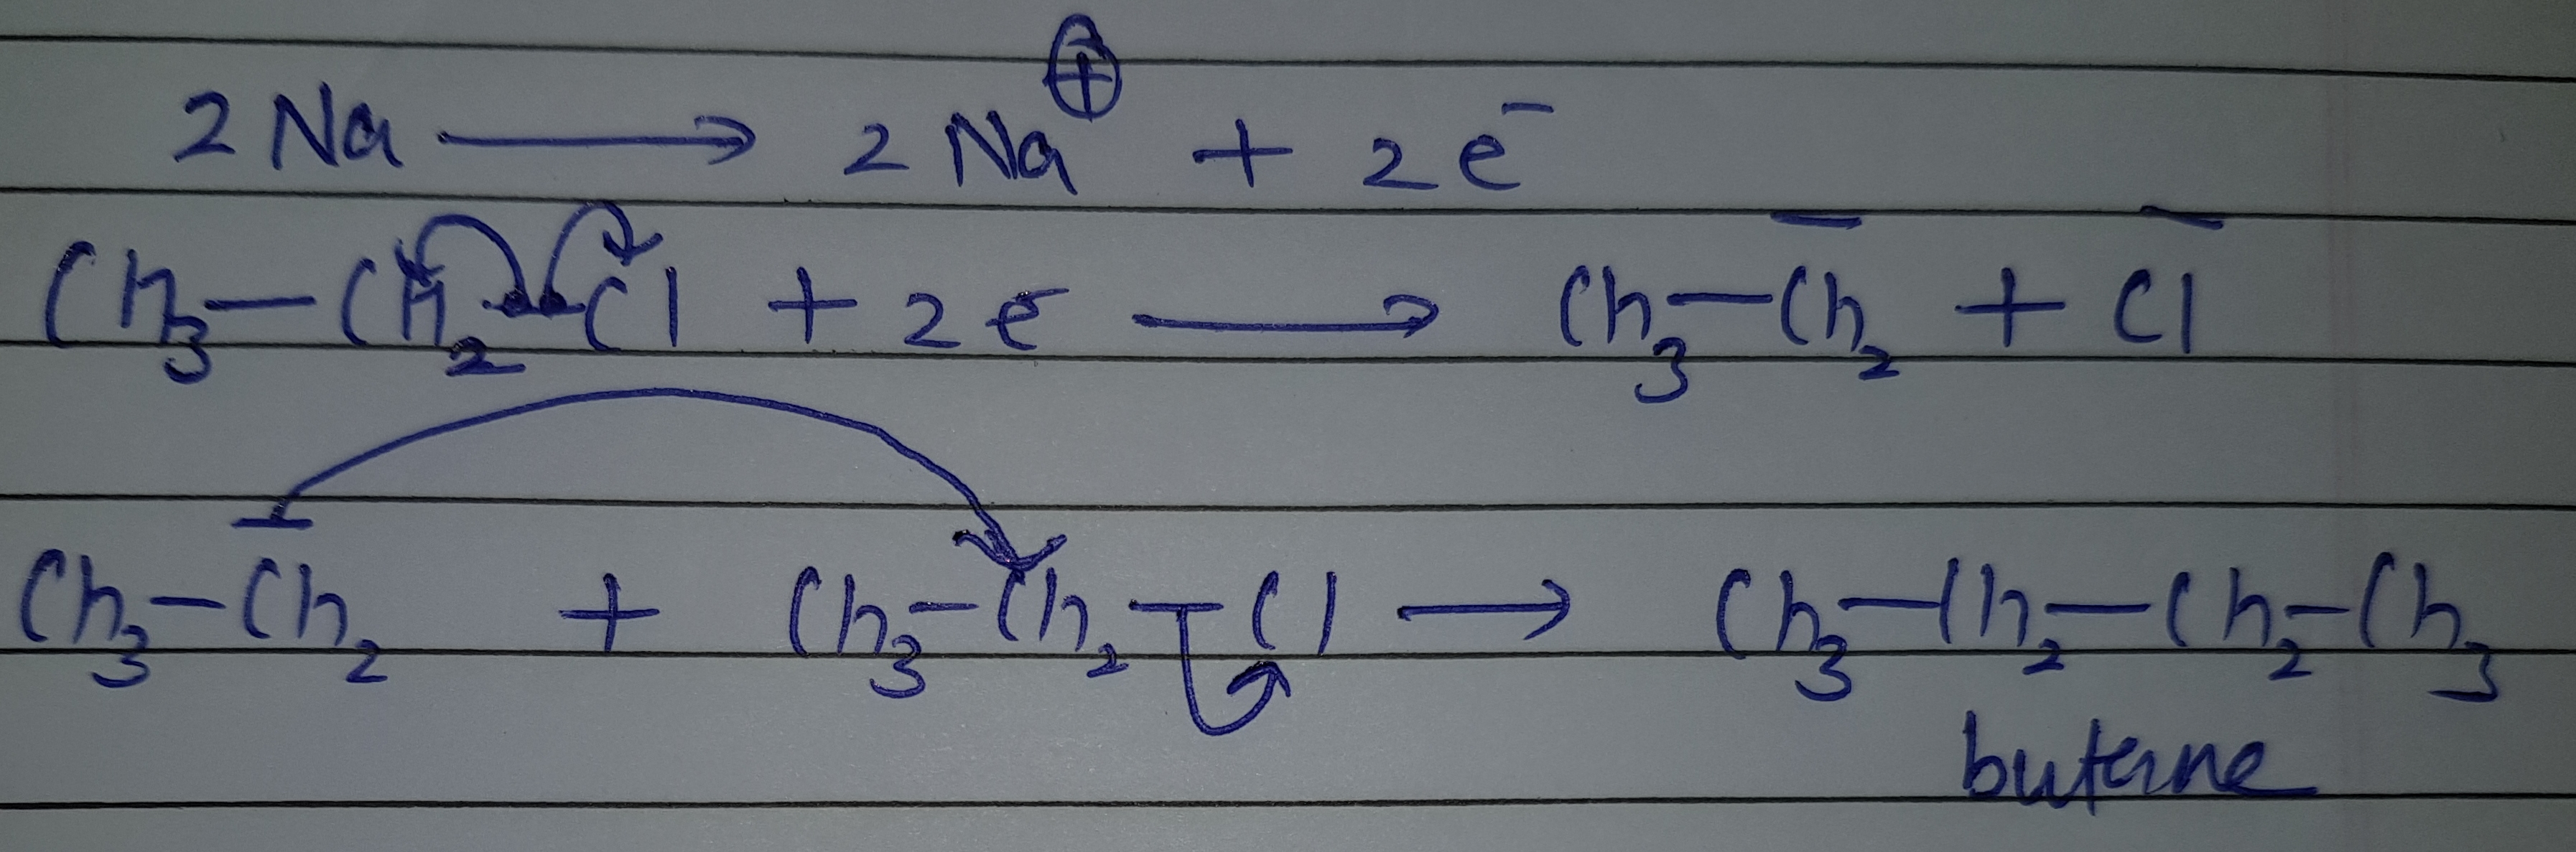 2 Na ⟶ 2 Na⊕ + 2 e⁻
CH₃–CH₂··Cl + 2 e⁻ ⟶ Ch₃–C̄h₂ + Cl⁻
Ch₃–C̄h₂ + Ch₃–Ch₂–Cl ⟶ Ch₃–Ch₂–Ch₂–Ch₃
butane